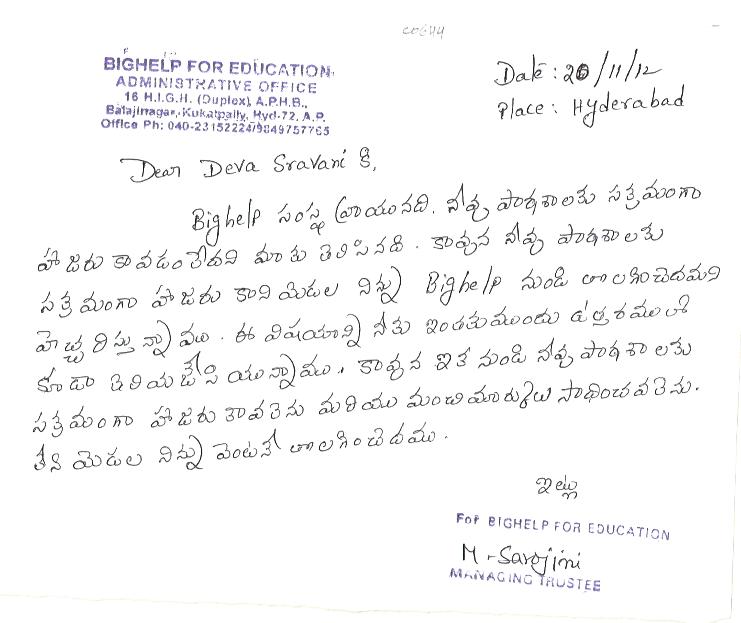 C0644
BIGHELP FOR EDUCATION
ADMINISTRATIVE OFFICE
16 H.I.G.H. (Duplex), A.P.H.B.,
Balajinagar, Kukatpally, Hyd-72, A.P.
Office Ph: 040-23152224/9849757765
Date : 20/11/12
Place : Hyderabad
Dear Deva Sravani కి,
Bighelp సంస్థ వ్రాయునది. నీవు పాఠశాలకు సక్రమంగా
హాజరు కావడంలేదని మాకు తెలిసినది. కావున నీవు పాఠశాలకు
సక్రమంగా హాజరు కాని యెడల నిన్ను Bighelp నుండి తొలగించెదమని
హెచ్చరిస్తున్నాము. ఈ విషయాన్ని నీకు ఇంతకుముందు ఉత్తరములో
కూడా తెలియజేసి యున్నాము. కావున ఇక నుండి నీవు పాఠశాలకు
సక్రమంగా హాజరు కావలెను మరియు మంచి మార్కులు సాధించవలెను.
లేని యెడల నిన్ను వెంటనే తొలగించెదము.
ఇట్లు
For BIGHELP FOR EDUCATION
M. Sarojini
MANAGING TRUSTEE